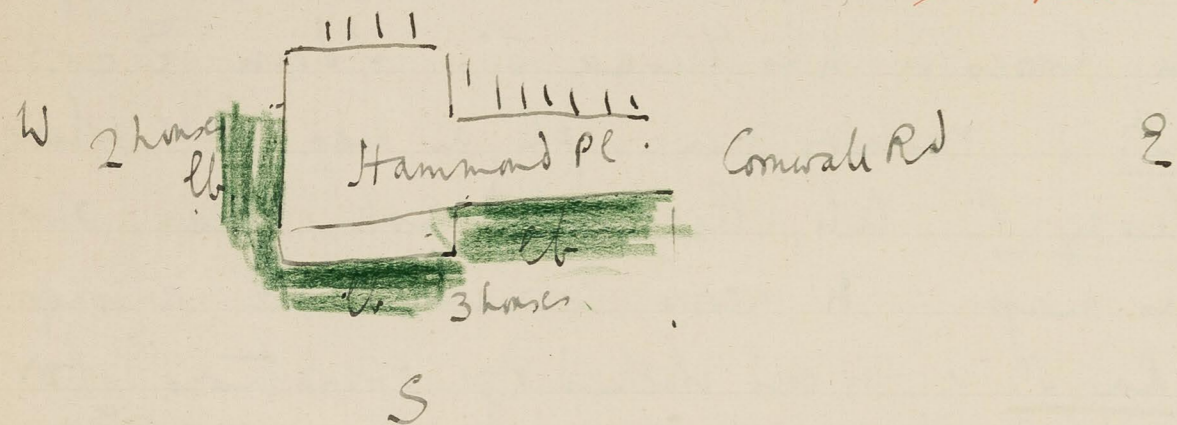 W
2 houses
lb
Hammond Pl.
Cornwall Rd
E
lb
lb
3 houses
S